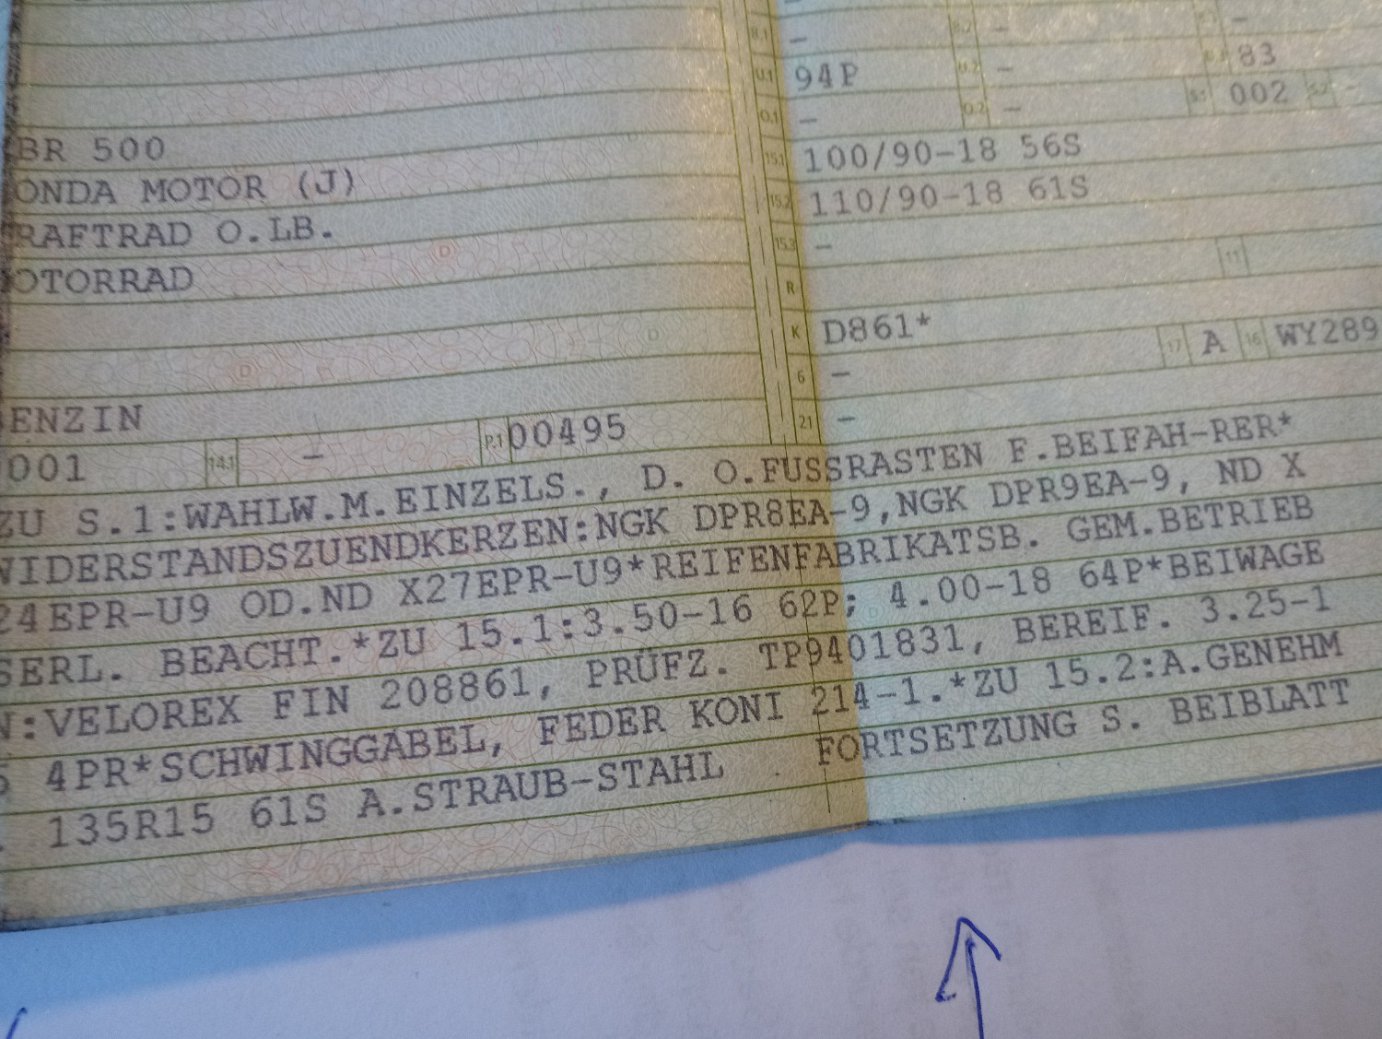 -
-
-
94P - 83
- - 002
BR 500 15.1 100/90-18 56S
ONDA MOTOR (J) 15.2 110/90-18 61S
RAFTRAD O.LB. 15.3 -
OTORRAD R 11
K D861* 17 A 16 WY289
6 -
ENZIN 21 -
001 14.1 - P.1 00495
ZU S.1:WAHLW.M.EINZELS., D. O.FUSSRASTEN F.BEIFAH-RER*
WIDERSTANDSZUENDKERZEN:NGK DPR8EA-9,NGK DPR9EA-9, ND X
24EPR-U9 OD.ND X27EPR-U9*REIFENFABRIKATSB. GEM.BETRIEB
SERL. BEACHT.*ZU 15.1:3.50-16 62P; 4.00-18 64P*BEIWAGE
N:VELOREX FIN 208861, PRÜFZ. TP9401831, BEREIF. 3.25-1
6 4PR*SCHWINGGABEL, FEDER KONI 214-1.*ZU 15.2:A.GENEHM
. 135R15 61S A.STRAUB-STAHL FORTSETZUNG S. BEIBLATT